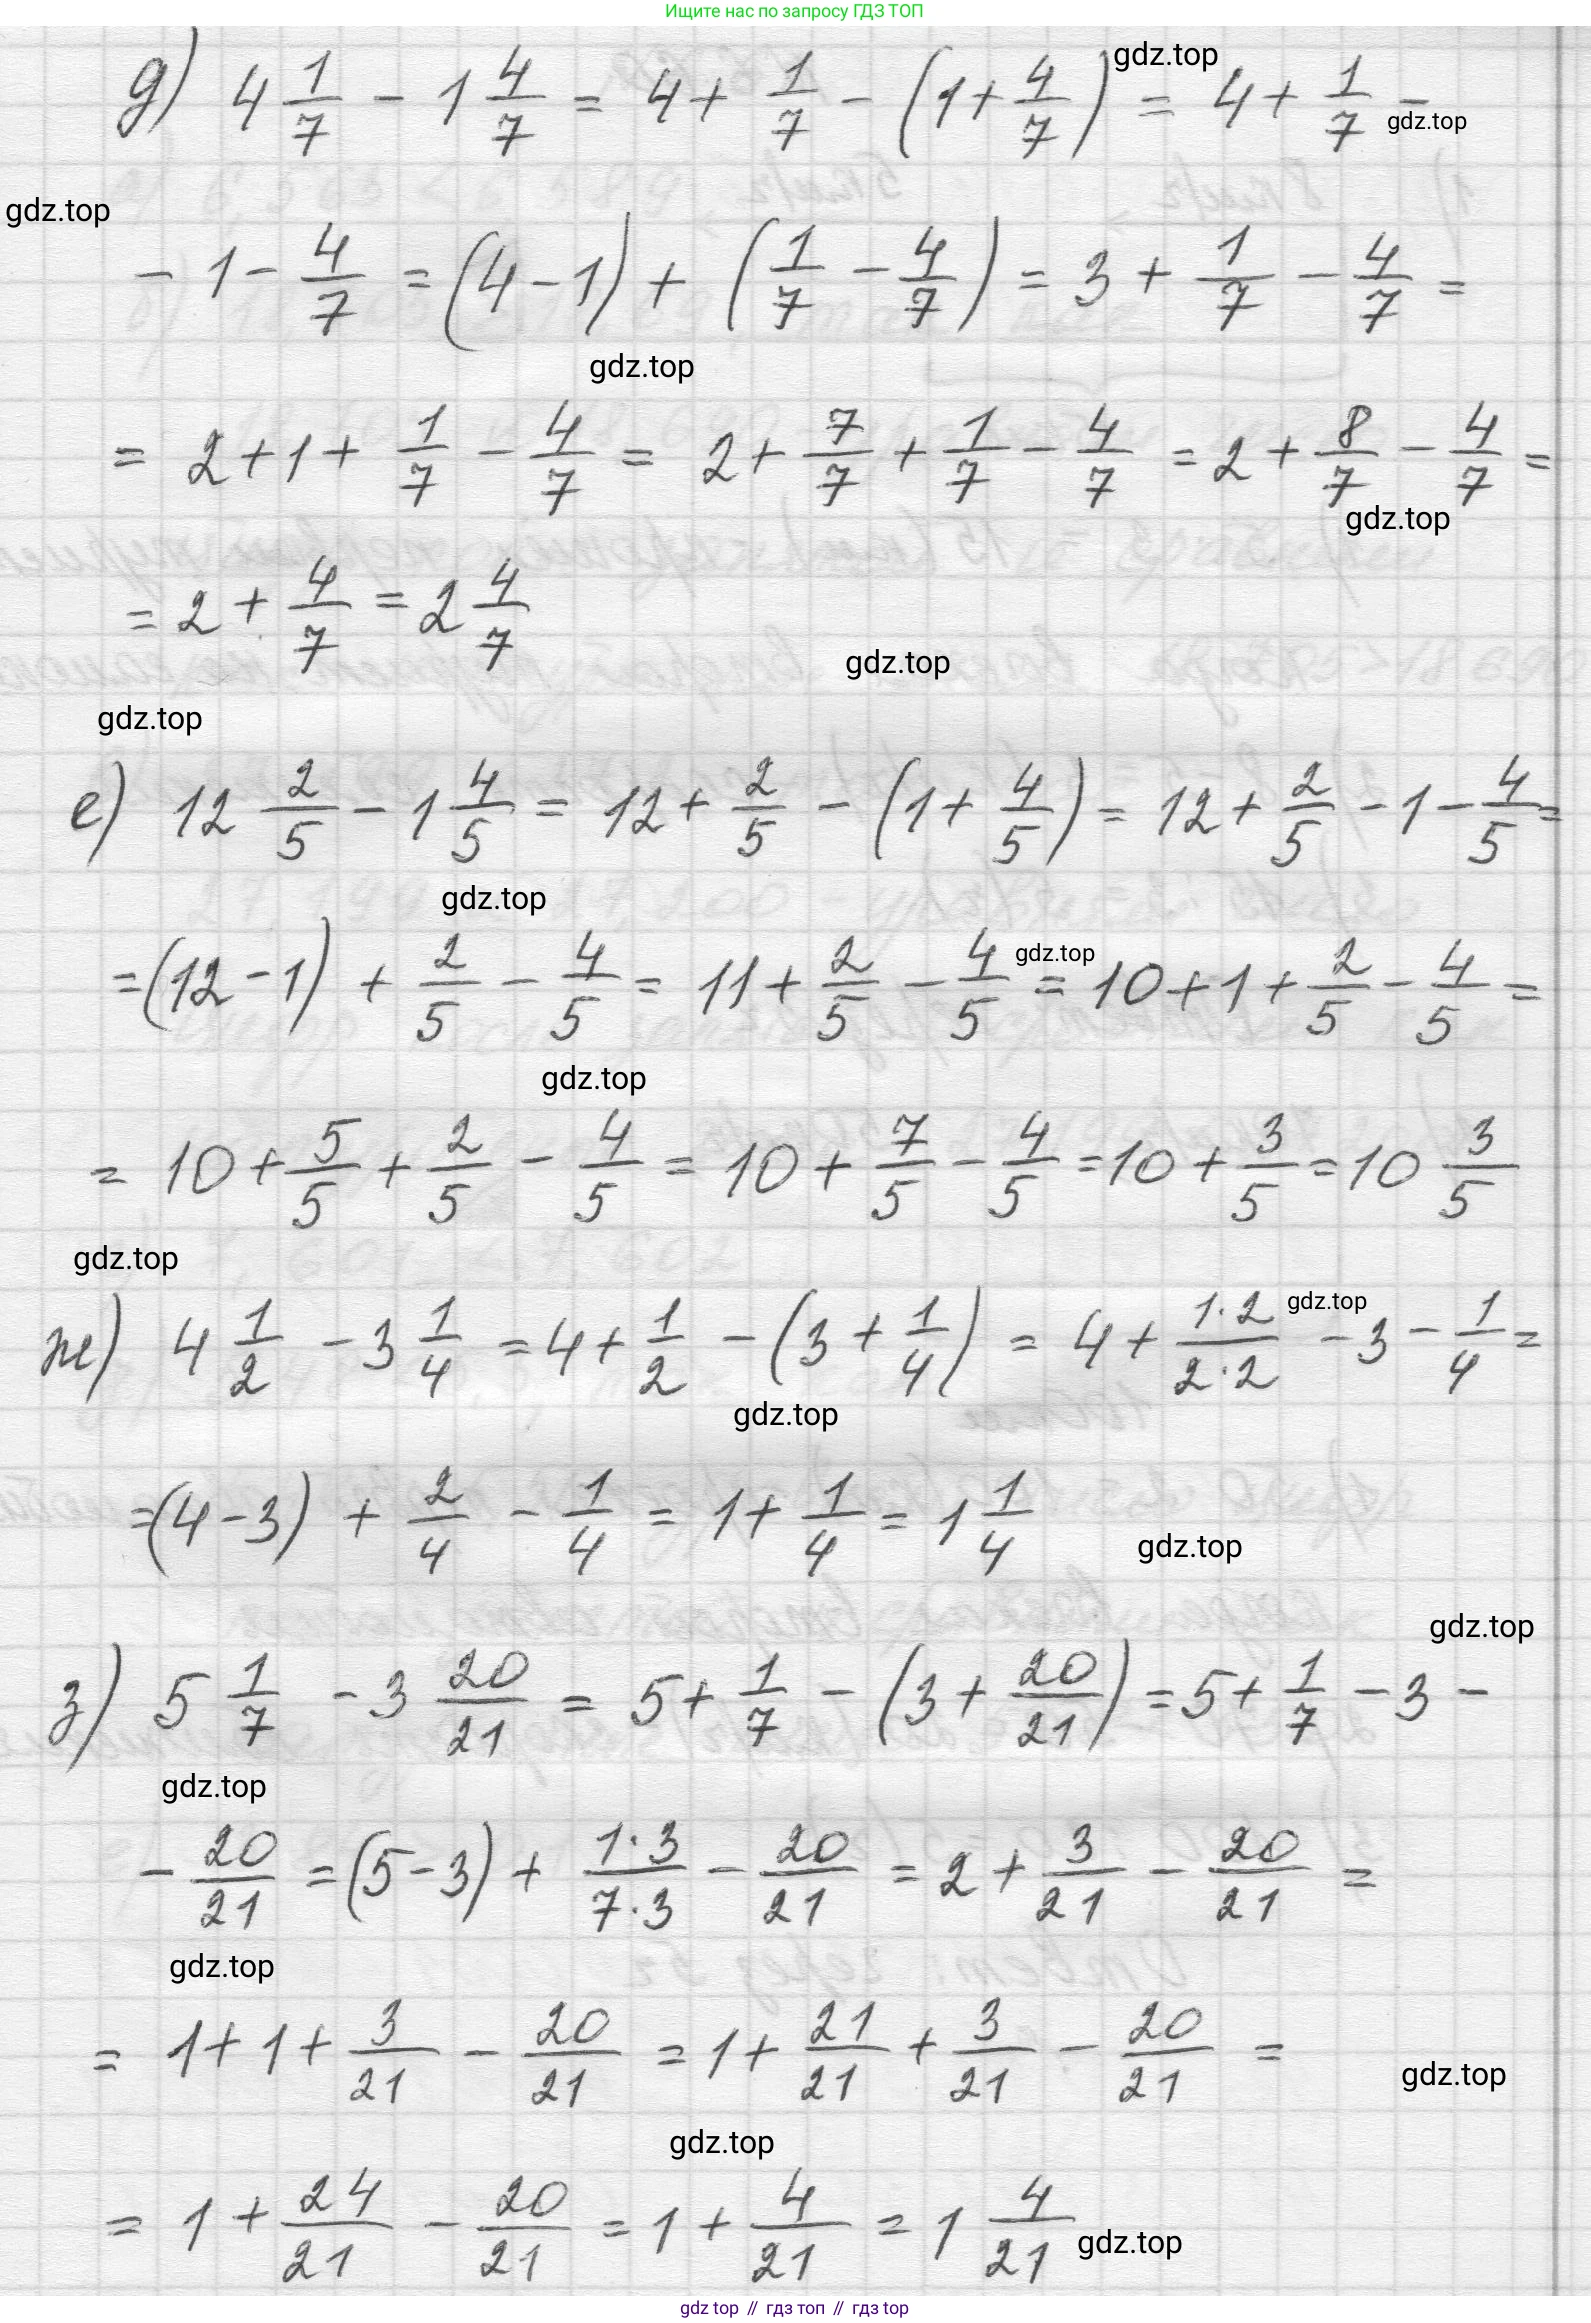 Ищите нас по запросу ГДЗ ТОП
д) 4 1/7 - 1 4/7 = 4 + 1/7 - (1 + 4/7) = 4 + 1/7 -
gdz.top
gdz.top
gdz.top
- 1 - 4/7 = (4 - 1) + (1/7 - 4/7) = 3 + 1/7 - 4/7 =
gdz.top
= 2 + 1 + 1/7 - 4/7 = 2 + 7/7 + 1/7 - 4/7 = 2 + 8/7 - 4/7 =
gdz.top
= 2 + 4/7 = 2 4/7
gdz.top
gdz.top
е) 12 2/5 - 1 4/5 = 12 + 2/5 - (1 + 4/5) = 12 + 2/5 - 1 - 4/5 =
gdz.top
= (12 - 1) + 2/5 - 4/5 = 11 + 2/5 - 4/5 = 10 + 1 + 2/5 - 4/5 =
gdz.top
gdz.top
= 10 + 5/5 + 2/5 - 4/5 = 10 + 7/5 - 4/5 = 10 + 3/5 = 10 3/5
gdz.top
ж) 4 1/2 - 3 1/4 = 4 + 1/2 - (3 + 1/4) = 4 + 1·2/2·2 - 3 - 1/4 =
gdz.top
gdz.top
= (4 - 3) + 2/4 - 1/4 = 1 + 1/4 = 1 1/4
gdz.top
gdz.top
з) 5 1/7 - 3 20/21 = 5 + 1/7 - (3 + 20/21) = 5 + 1/7 - 3 -
gdz.top
- 20/21 = (5 - 3) + 1·3/7·3 - 20/21 = 2 + 3/21 - 20/21 =
gdz.top
= 1 + 1 + 3/21 - 20/21 = 1 + 21/21 + 3/21 - 20/21 =
gdz.top
gdz.top
= 1 + 24/21 - 20/21 = 1 + 4/21 = 1 4/21
gdz.top
gdz top // гдз топ // гдз top